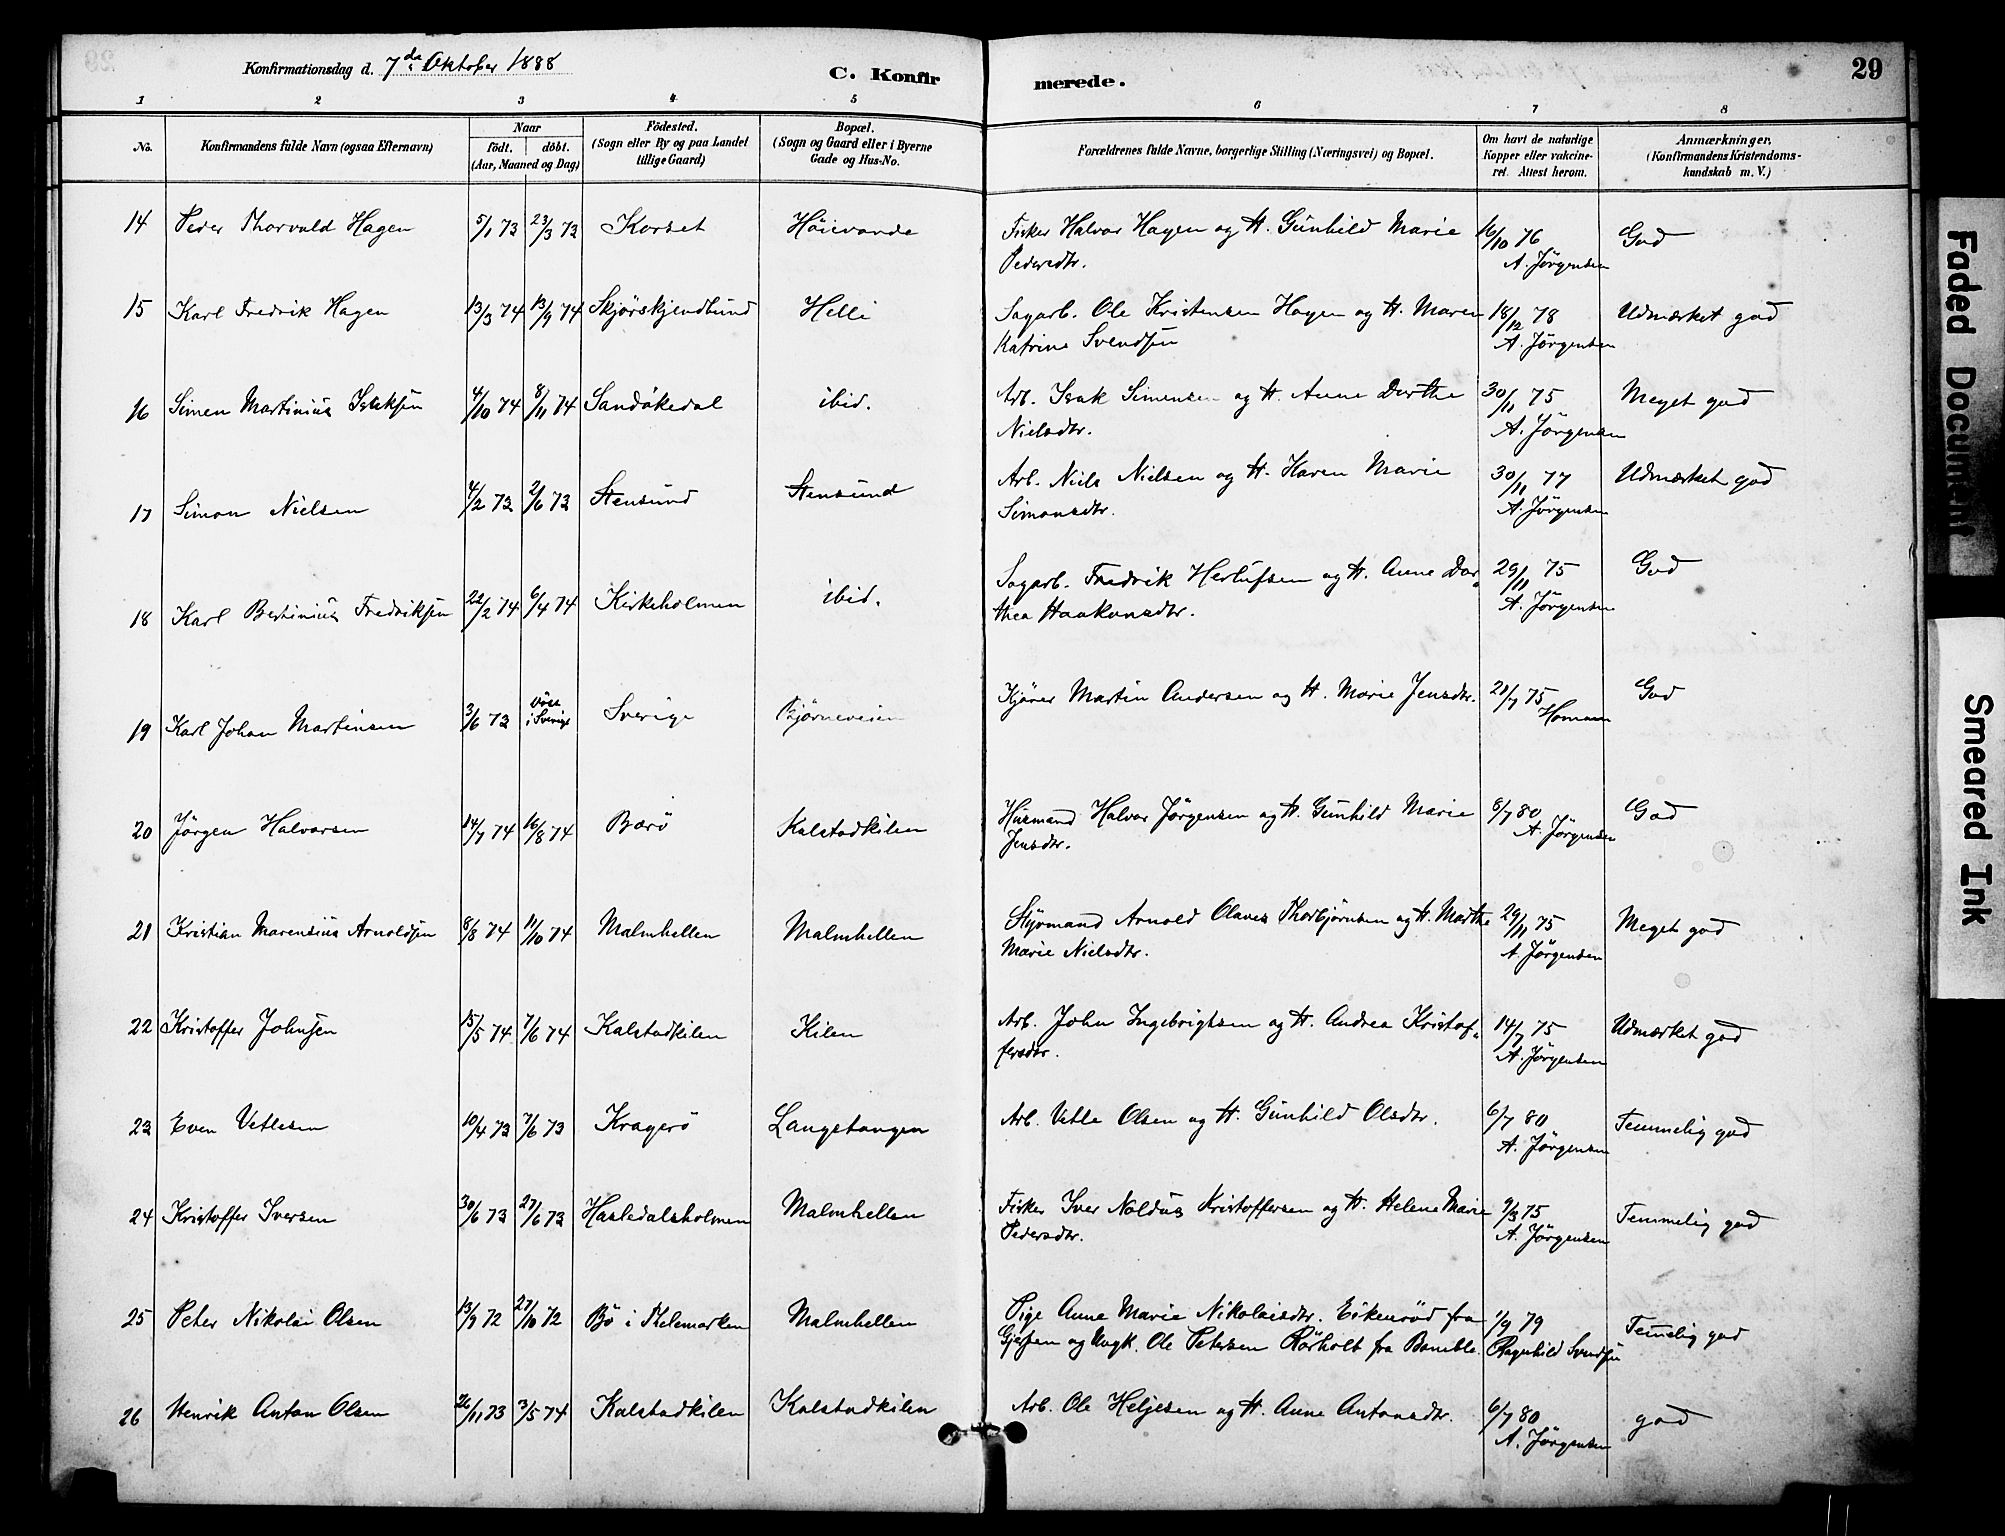 Konfirmationsdag d. 7de Oktober 1888
C. Konfir
merede.
29
1 2 3 4 5 6 7 8
No. Konfirmandens fulde Navn (ogsaa Efternavn) Naar födt. döbt. (Aar, Maaned og Dag) Födested. (Sogn eller By og paa Landet tillige Gaard) Bopæl. (Sogn og Gaard eller i Byerne Gade og Hus-No. Forældrenes fulde Navne, borgerlige Stilling (Næringsvei) og Bopæl. Om havt de naturlige Kopper eller vakcineret. Attest herom. Anmærkninger. (Konfirmandens Kristendomskundskab m. V.)
14 Peder Thorvald Hagen 5/1 73 23/3 73 Korset Höievarde Fisker Halvor Hagen og H. Gunhild Marie 16/10 76 God
Pedersdtr. A. Jörgensen
15 Karl Fredrik Hagen 13/3 74 13/9 74 Skjörskjendlund Helle Sagarb. Ole Kristensen Hagen og H. Maren 18/12 78 Udmærket god
Katrine Svendsen A. Jörgensen
16 Simen Martinius Isaksen 4/10 74 8/11 74 Sandökedal ibid. Arb. Isak Simensen og H. Anne Dorthe 30/11 75 Meget god
Nielsdtr. A. Jörgensen
17 Simon Nielsen 4/2 73 2/6 73 Stensund Stensund Arb. Niels Nielsen og H. Karen Marie 30/11 77 Udmærket god
Simonsdtr. A. Jörgensen
18 Karl Bertinius Fredriksen 22/2 74 6/4 74 Kirkeholmen ibid. Sagarb. Fredrik Herlufsen og H. Anne Dor- 29/11 75 God
thea Haakonsdtr. A. Jörgensen
19 Karl Johan Martinsen 3/6 73 i Sverige Sverige Bjørneveien Kjörer Martin Andersen og H. Marie Jensdtr. 21/7 75 God
Homann
20 Jörgen Halvorsen 14/7 74 16/8 74 Barö Kalstadkilen Husmand Halvor Jörgensen og H. Gunhild Marie 6/7 80 God
Jensdtr. A. Jörgensen
21 Kristian Marensius Arnoldsen 8/8 74 11/10 74 Malmhellen Malmhellen Styrmand Arnold Olaves Thorbjörnsen og H. Marthe 29/11 75 Meget god
Marie Nielsdtr. A. Jörgensen
22 Kristoffer Johnsen 15/5 74 7/6 74 Kalstadkilen Kilen Arb. John Ingebrigtsen og H. Andrea Kristof- 14/7 75 Udmærket god
fersdtr. A. Jörgensen
23 Even Vetlesen 10/4 73 7/6 73 Kragerö Langetangen Arb. Vetle Olsen og H. Gunhild Olsdtr. 6/7 80 Temmelig god
A. Jörgensen
24 Kristoffer Iversen 30/6 73 27/6 73 Hasledalsholmen Malmhellen Fisker Iver Noldus Kristoffersen og H. Helene Marie 9/3 75 Temmelig god
Pedersdtr. A. Jörgensen
25 Peter Nikolai Olsen 13/9 72 27/10 72 Bö i Thelemarken Malmhellen Pige Anne Marie Nikolaisdtr. Eikenröd fra 1/9 79 Temelig god
Gjerpen og Ungk. Ole Petersen Rörholt fra Bamble. Ragnhild Svendsen
26 Henrik Anton Olsen 26/11 73 3/5 74 Kalstadkilen Kalstadkilen Arb. Ole Heljesen og H. Anne Antonsdtr. 6/7 80 god
A. Jörgensen
Faded Document
Smeared Ink